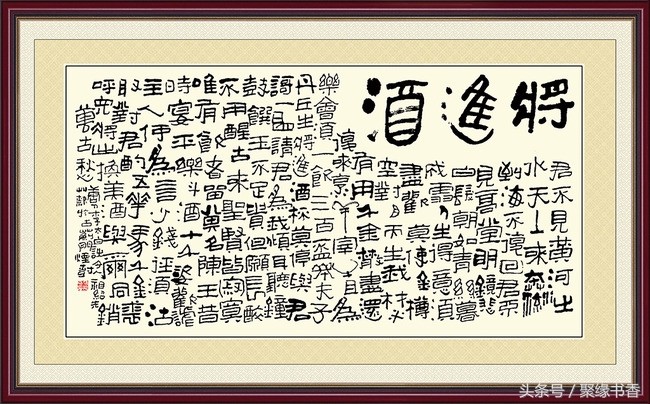 將進酒
君不見黃河之
水天上來奔流
到海不復回君不
見高堂明鏡悲
白髮朝如青絲暮
成雪人生得意須
盡歡莫使金樽
空對月天生我材
有用千金散盡還
復來烹羊宰牛且為
樂會須一飲三百盃岑夫子
丹丘生將進酒杯莫停與君
謌一曲請君為我傾耳聽鐘
鼓饌玉不足貴但願長醉
不用醒古來聖賢皆寂寞
唯有飲者留其名陳王昔
時宴平樂斗酒十千恣歡謔
主人何為言少錢徑須沽
取對君酌五華馬千金裘
呼兒將出換美酒與爾同銷
萬古愁
头条号 / 聚缘书香